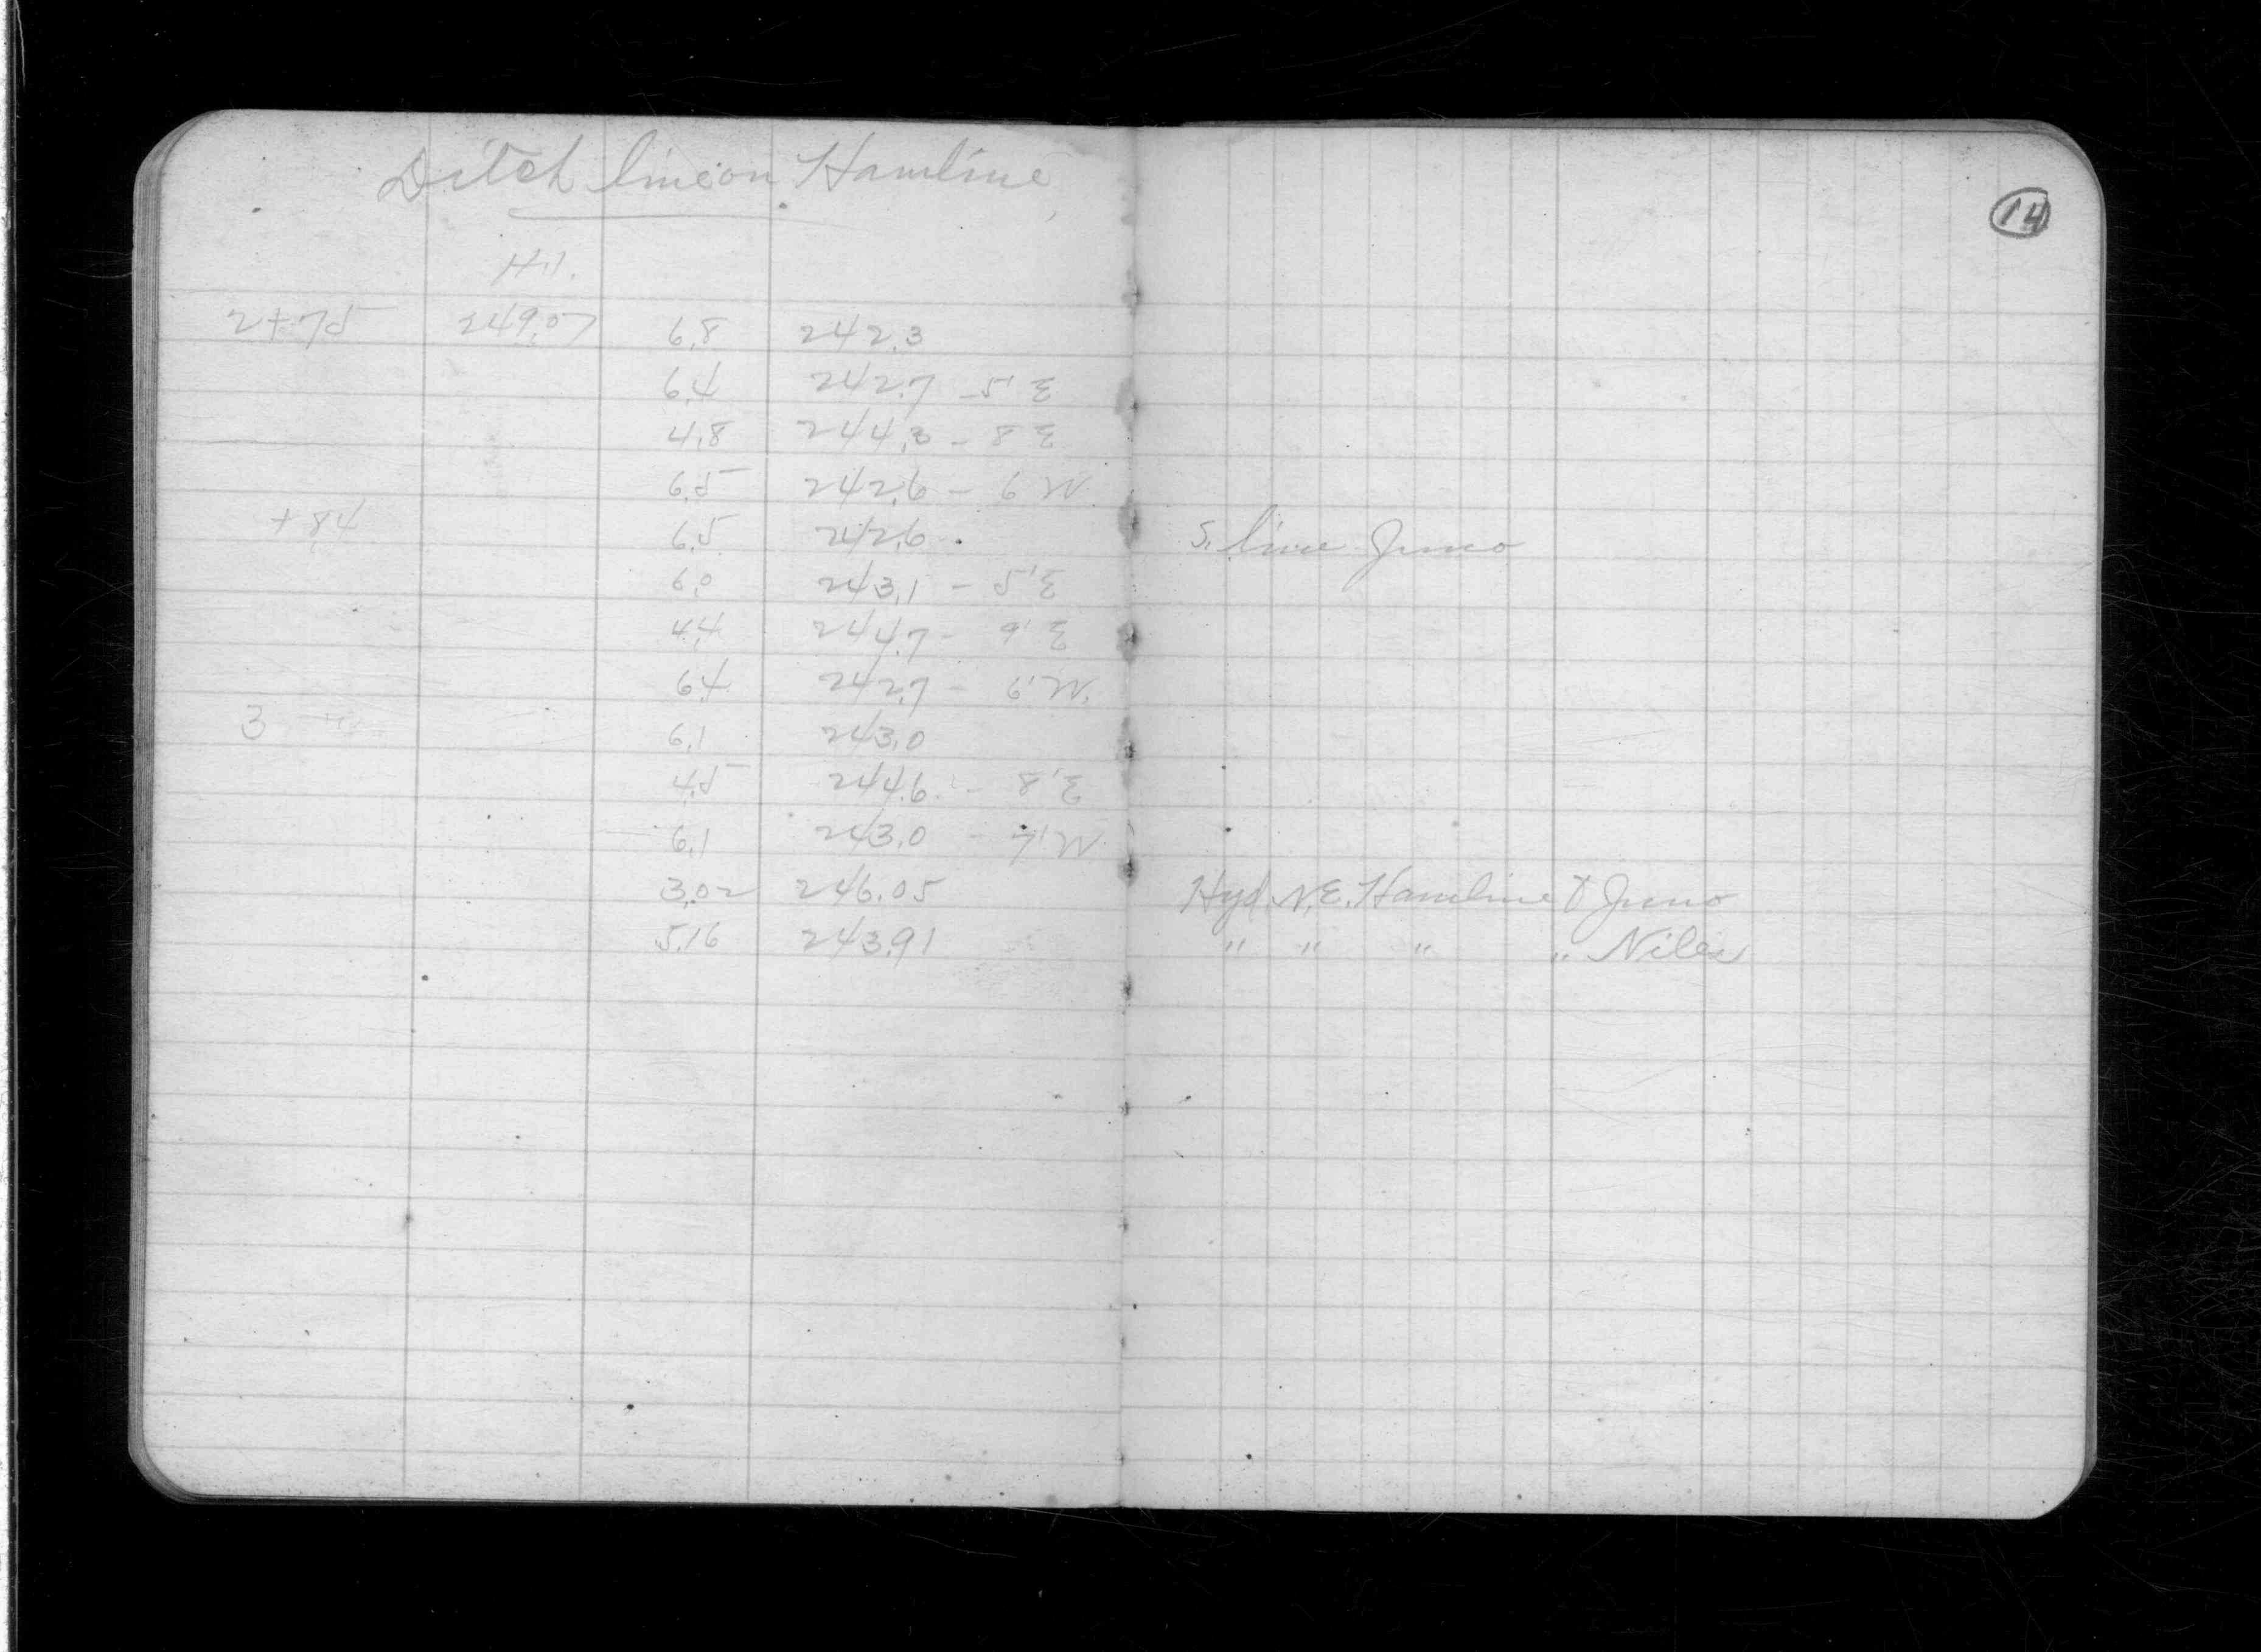 Ditch line on Hamline
14
H.I.
2+75 249.07 6.8 242.3
6.4 242.7 - 5' E
4.8 244.3 - 8 E
6.5 242.6 - 6 W.
+84 6.5 242.6 S. line Juno
6.0 243.1 - 5' E
4.4 244.7 - 9' E
6.4 242.7 - 6' W.
3 6.1 243.0
4.5 244.6 - 8' E
6.1 243.0 - 7' W.
3.02 246.05 Hyd. N.E. Hamline & Juno
5.16 243.91 " " " " Niles